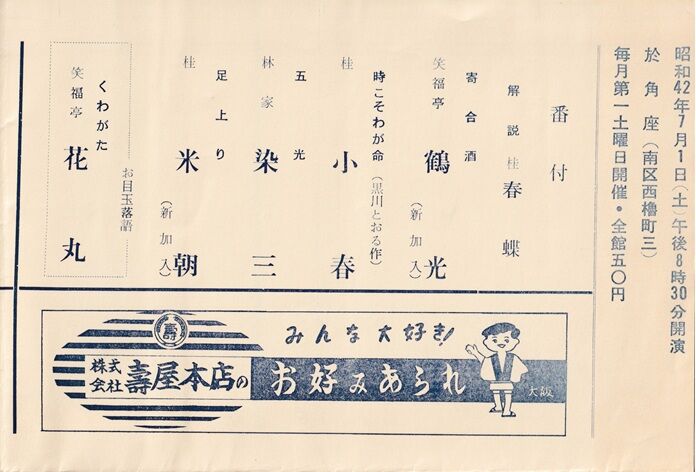 昭和42年7月1日(土)午後8時30分開演
於角座(南区西櫓町三)
毎月第一土曜日開催・全館五〇円
番付
解説 桂春蝶
寄合酒
笑福亭 鶴光 (新加入)
時こそわが命 (黒川とおる作)
桂 小春
五光
林家 染三
足上り
桂 米朝 (新加入)
お目玉落語
くわがた
笑福亭 花丸
壽
みんな大好き!
株式会社 壽屋本店の
お好みあられ
大阪